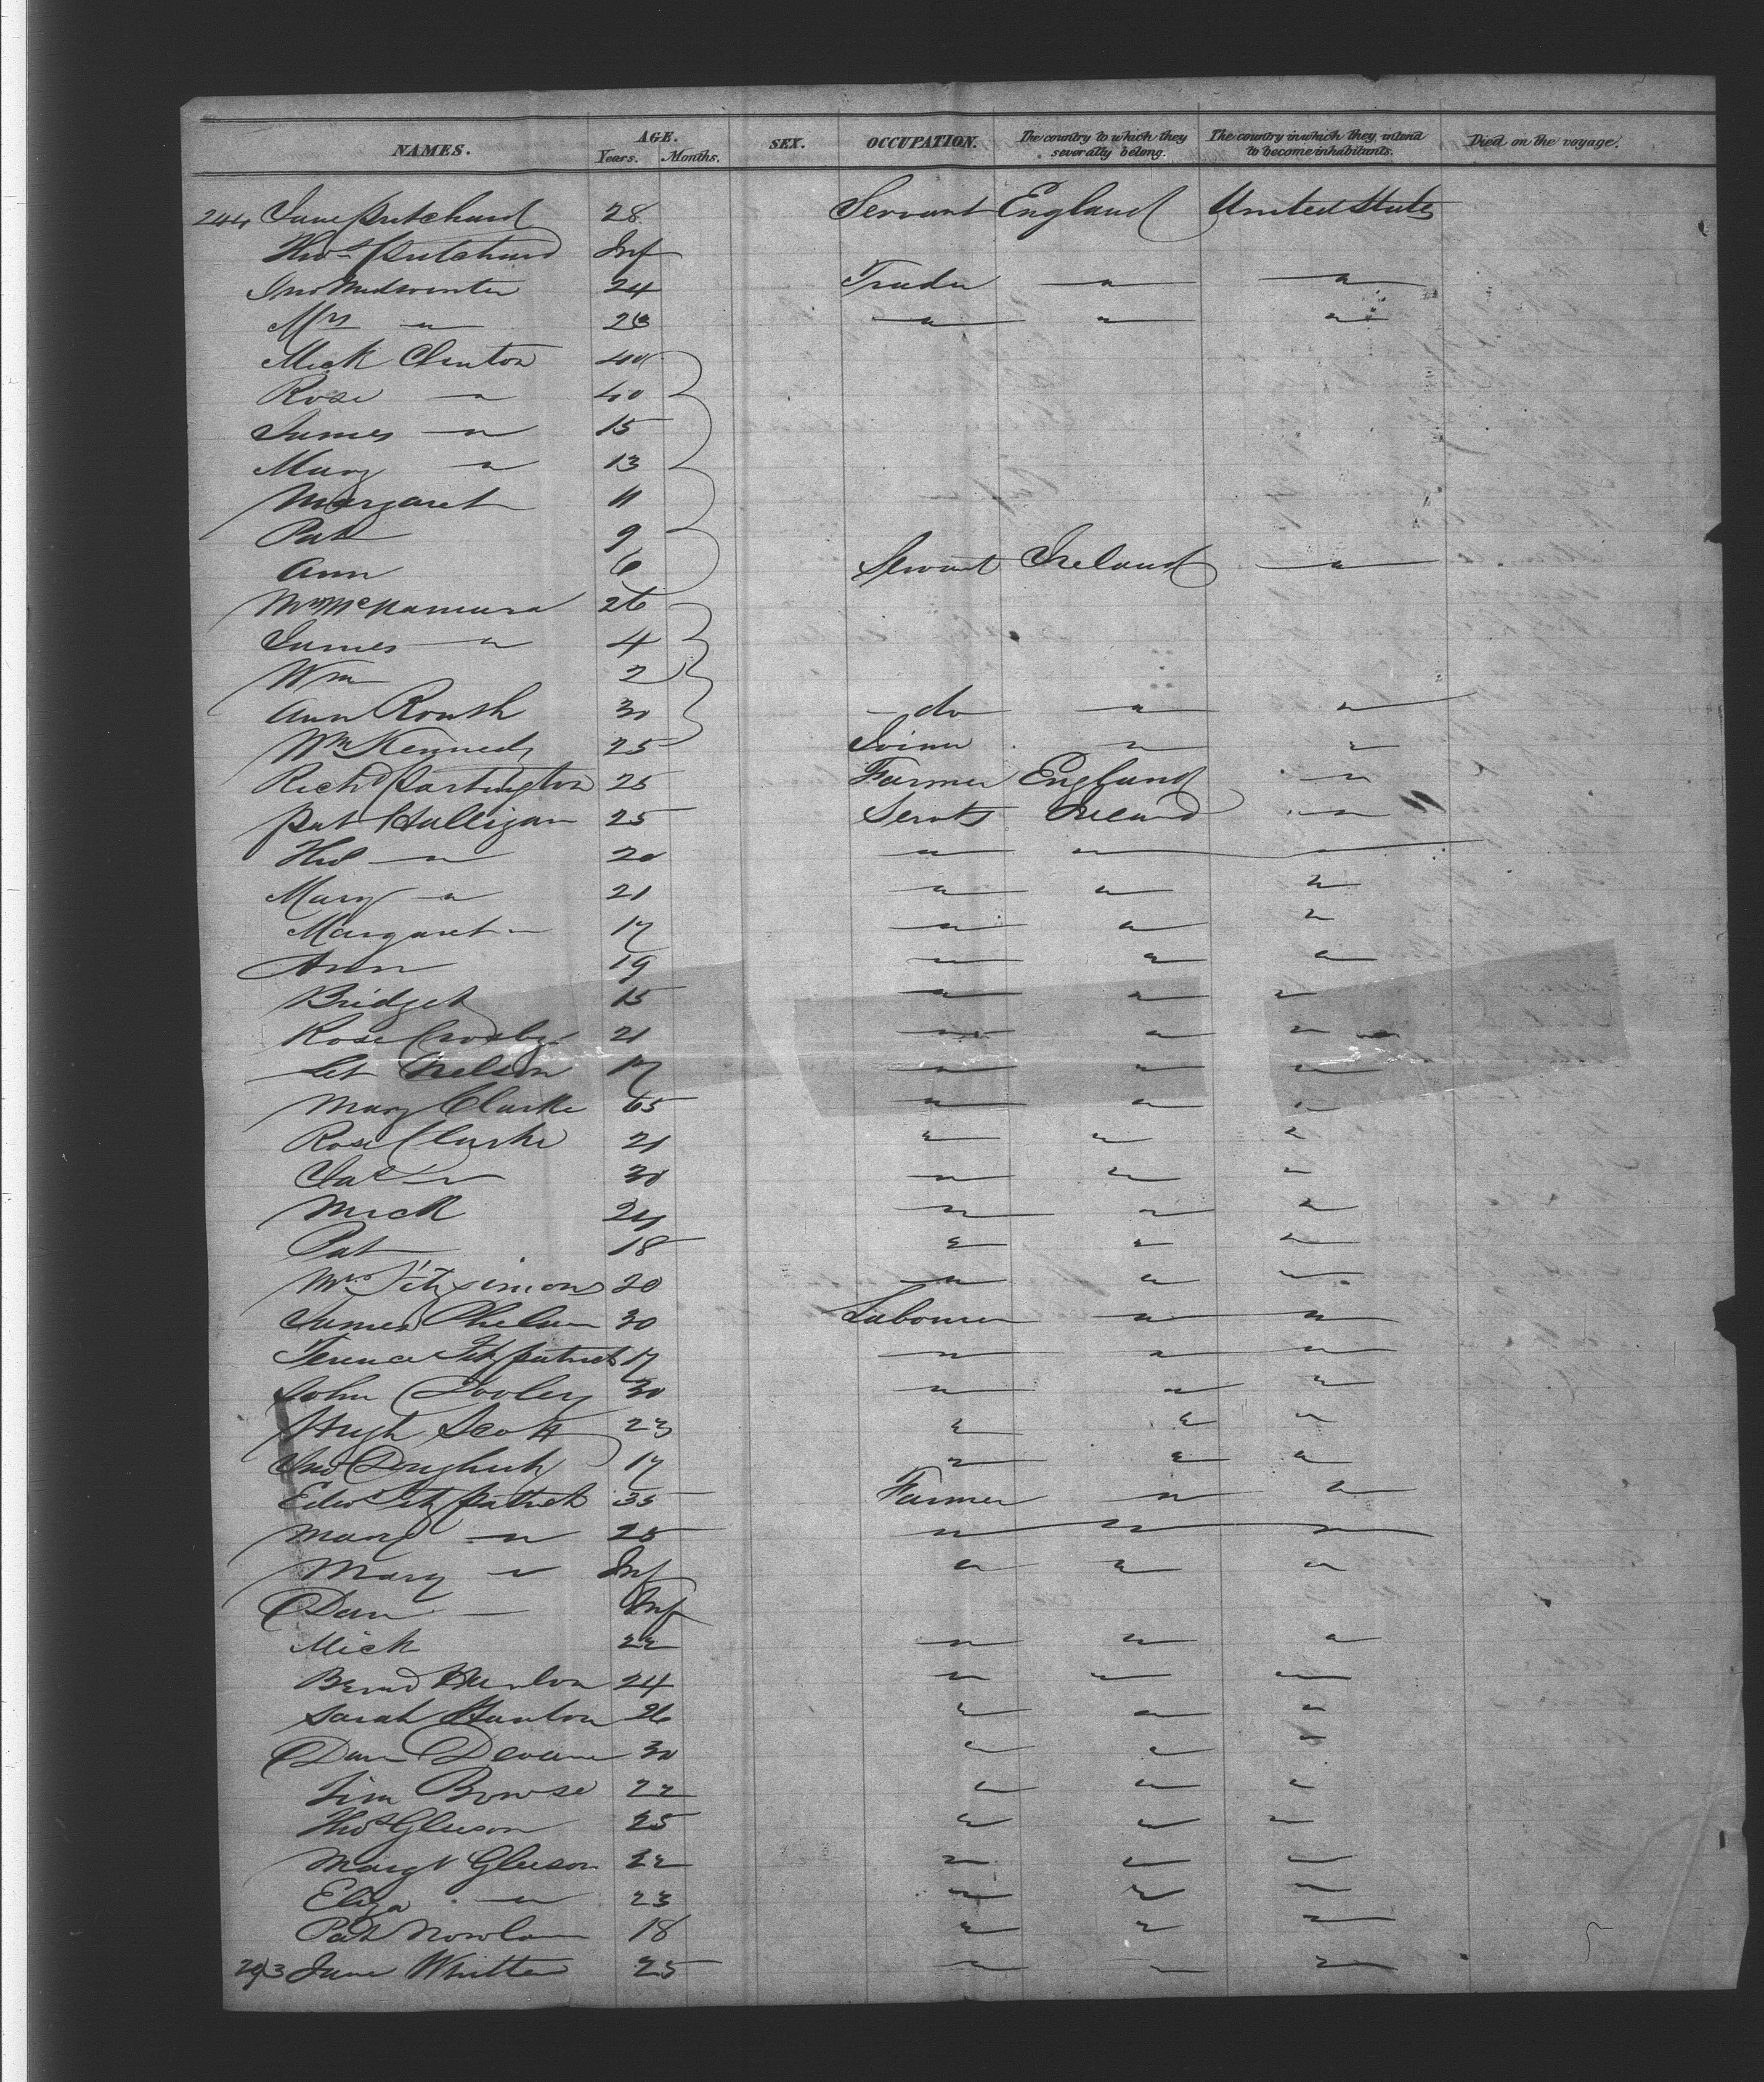 NAMES. AGE. Years. Months. SEX. OCCUPATION. The country to which they severally belong. The country in which they intend to become inhabitants. Died on the voyage.
244 Jane Pritchard 28 Servant England United States
Thos Pritchard Inf
Jno Midwinter 24 Trader " "
Mrs " 26 " " "
Mick Clinton 40
Rose " 40
James " 15
Mary " 13
Margaret 11
Pat 9
Ann 6 Servant Ireland "
Mrs McNamara 26
James " 4
Wm 2
Ann Roush 30 do " "
Wm Kennedy 25 Joiner " "
Richd Partington 25 Farmer England "
Pat Halligan 25 Servts Ireland "
Thos " 20 " " "
Mary " 21 " " "
Margaret " 17 " " "
Ann 19 " " "
Bridget 15 " " "
Rose Crosby 21 " " "
Let Nelson 17 " " "
Mary Clarke 65 " " "
Rose Clarke 21 " " "
Jas " 30 " " "
Mick 24 " " "
Pat 18 " " "
Mrs Fitzsimons 20 " " "
James Phelan 30 Labourer " "
Terence Fitzpatrick 17 " " "
John Dooley 30 " " "
Hugh Scott 23 " " "
Jno Dougherty 17 " " "
Edwd Fitzpatrick 35 Farmer " "
Mary " 25 " " "
Mary " Inf " " "
Dan " Inf
Mick 22 " " "
Bernd Hanlon 24 " " "
Sarah Hanlon 26 " " "
Dan Devane 30 " " "
Jim Bowse 22 " " "
Thos Gleeson 25 " " "
Margt Gleeson 22 " " "
Eliza " 23 " " "
Pat Nowlan 18 " " "
293 Jane Whitten 25 " " "